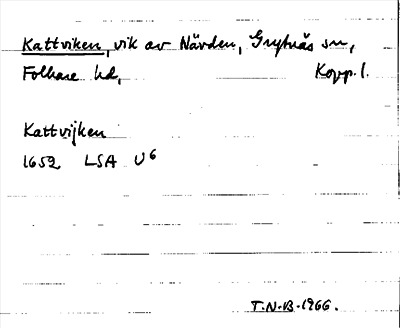 Kattviken, vik av Nävden, Grytnäs sn,
Folkare hd, Kopp. l.
Kattvijken
1652 LSA U6
T.N.B. 1966.